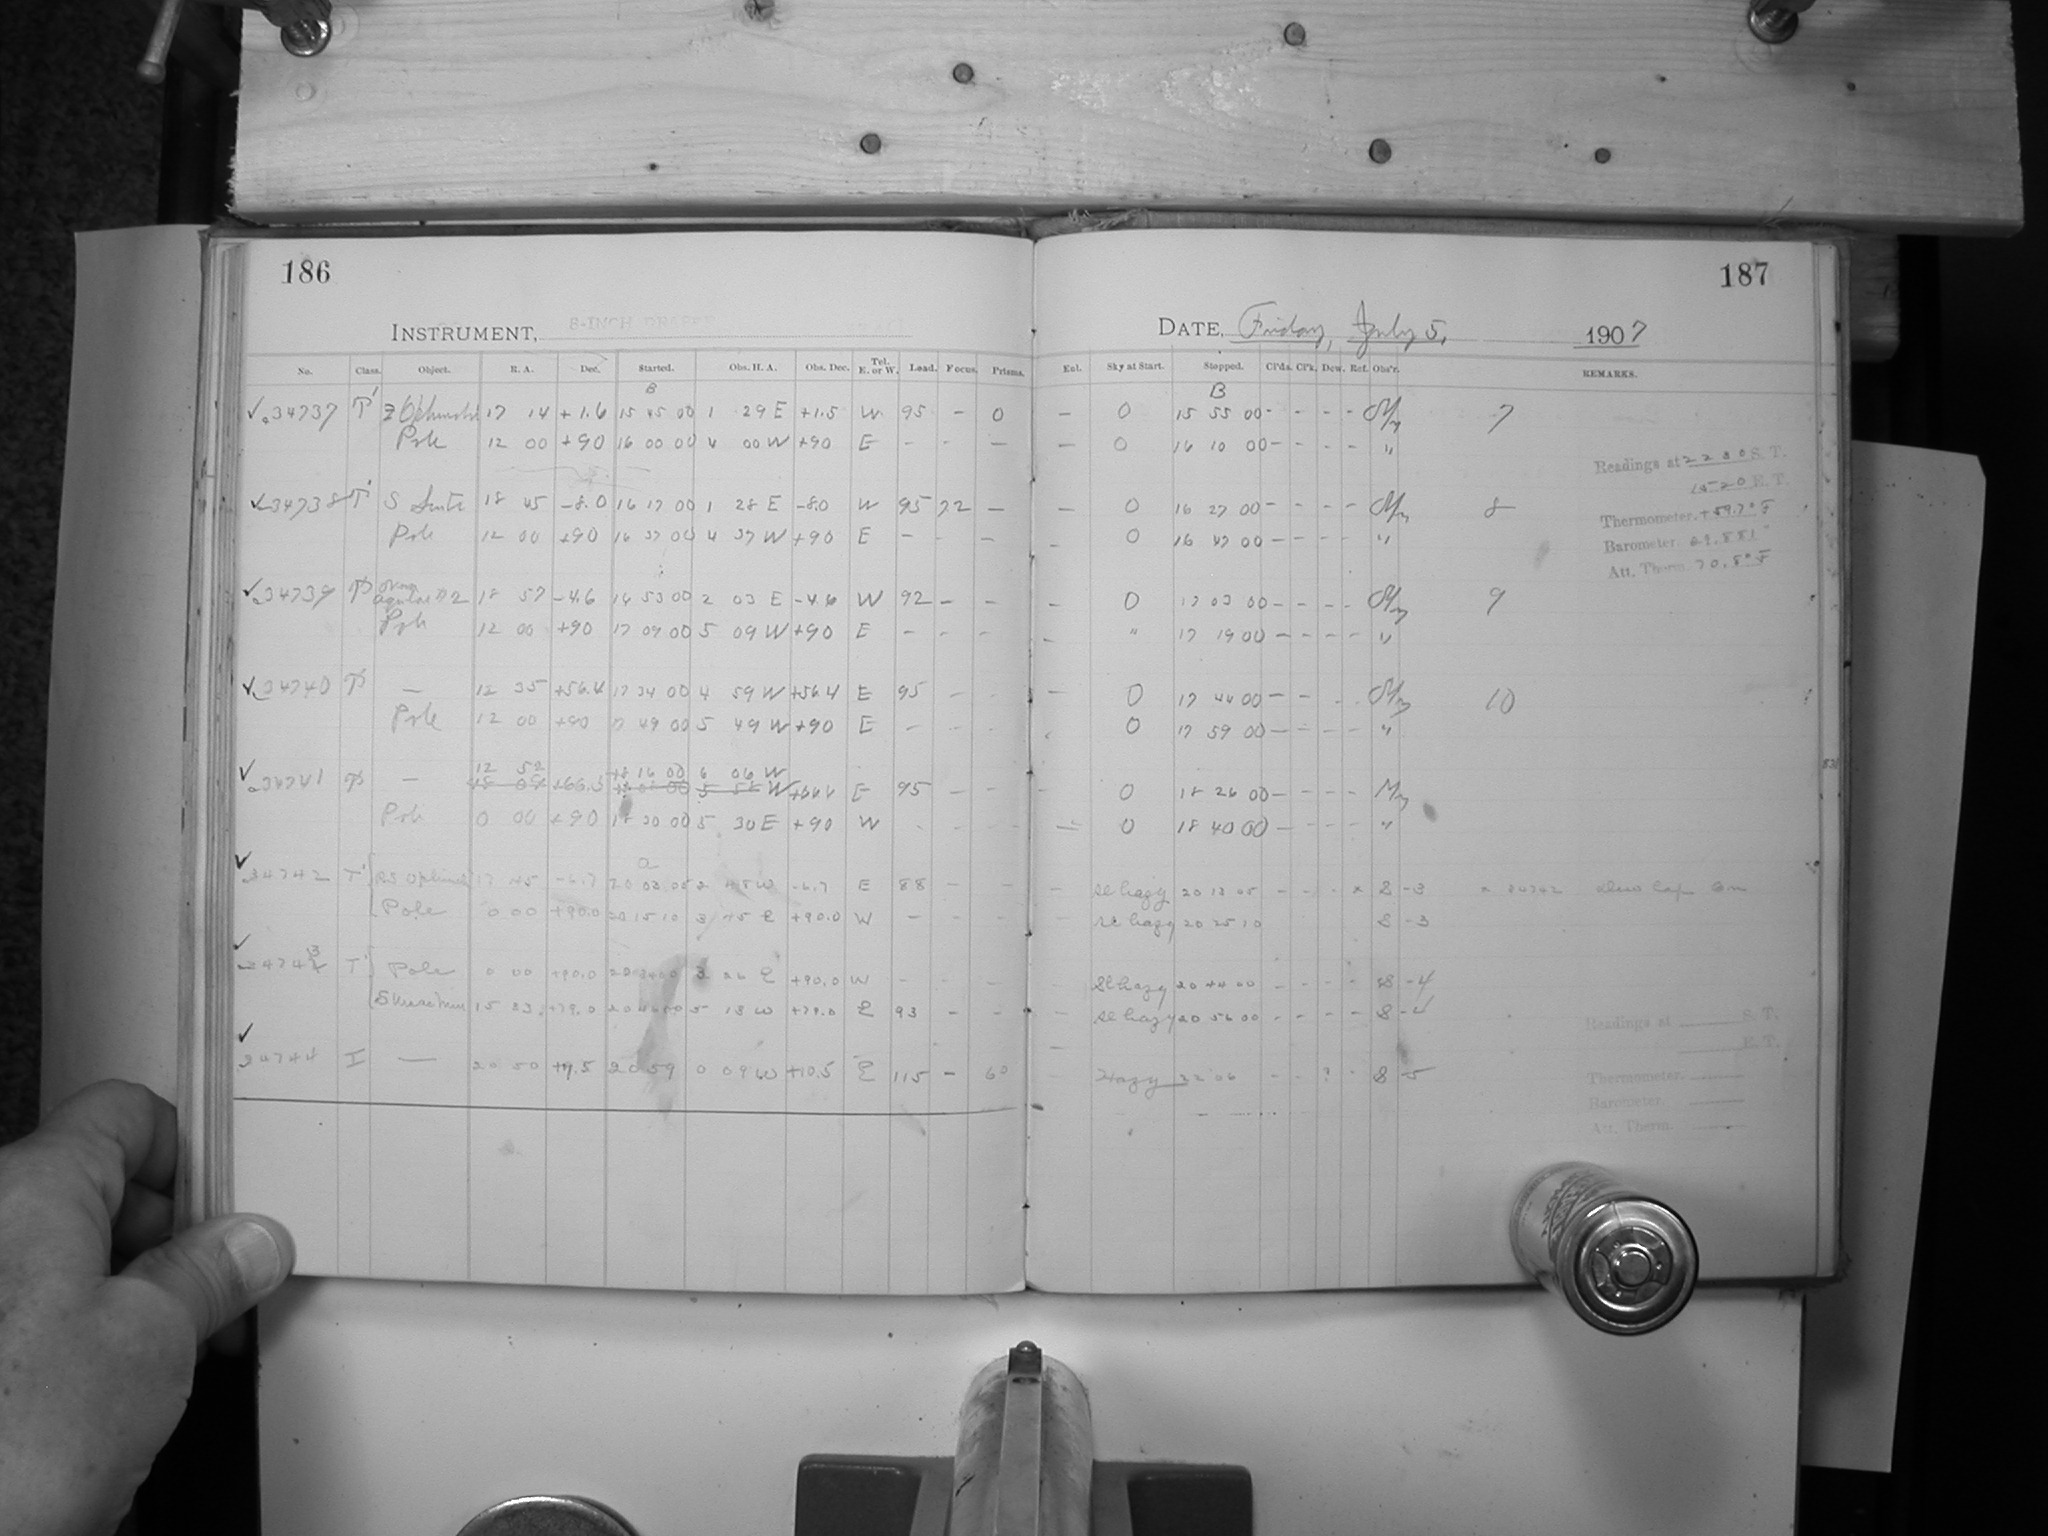 186
INSTRUMENT, 8-INCH DRAPER
No. Class. Object. R. A. Dec. Started. Obs. H. A. Obs. Dec. Tel. E. or W. Lead. Focus. Prisms.
B
34737 T' Z 17 14 +1.6 15 45 00 1 29 E +1.5 W 95 - 0
Pole 12 00 +90 16 00 00 4 00 W +90 E - - -
34738 T' S Scuti 18 45 -8.0 16 17 00 1 28 E -8.0 W 95 72 -
Pole 12 00 +90 16 37 00 4 37 W +90 E - - -
34739 18 57 -4.6 16 53 00 2 03 E -4.6 W 92 - -
Pole 12 00 +90 17 09 00 5 09 W +90 E - - -
34740 — 12 35 +56.4 17 34 00 4 59 W +56.4 E 95 - -
Pole 12 00 +90 17 49 00 5 49 W +90 E - - -
12 52 18 16 00 6 06 W
34741 — +66.5 E 95 - -
Pole 0 00 +90 18 30 00 5 30 E +90 W - - -
a
34742 T' RS Ophiuchi 17 45 -6.7 20 03 05 2 18 W -6.7 E 88 - -
Pole 0 00 +90.0 20 15 10 3 45 E +90.0 W - - -
34743 T' Pole 0 00 +90.0 20 34 00 3 26 E +90.0 W - - -
S 15 33 +79.0 20 46 00 5 13 W +79.0 E 93 - -
34744 I — 20 50 20 59 0 09 W +10.5 E 115 - 60
187
DATE, Friday, July 5, 1907
Enl. Sky at Start. Stopped. Cl'ds. Cl'k. Dew. Ref. Obs'r. REMARKS.
B
- 0 15 55 00 - - - - 7
- 0 16 10 00 - - - - "
Readings at 22 30 S. T.
15 20 E. T.
- 0 16 27 00 - - - - 8
Thermometer. +59.7° F
- 0 16 47 00 - - - - "
Barometer. 29.881"
Att. Therm. 70.5° F
- 0 17 03 00 - - - - 9
- " 17 19 00 - - - - "
- 0 17 44 00 - - - - 10
0 17 59 00 - - - - "
- 0 18 26 00 - - - -
- 0 18 40 00 - - - - "
- Sl hazy 20 13 05 - - - x 8 -3 x 34742 Dew Cap on
Sl hazy 20 25 10 8 -3
- Sl hazy 20 44 00 - - - - 8 -4
- Sl hazy 20 56 00 - - - - 8 -4
Readings at S. T.
E. T.
- Hazy 22 06 - - ? - 8 -5
Thermometer.
Barometer.
Att. Therm.